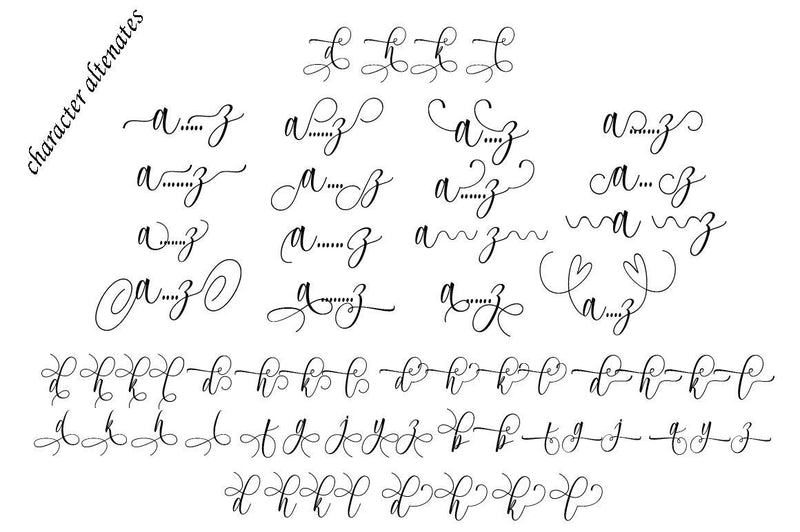 character altenates
d h k l
a.....z a......z a....z a.......z
a.......z a....z a......z a... z
a......z a......z a z a z
a....z a........z a.....z a...z
d h k l d h k l d h k l d h k l
d k h l t g j y z b b t g j q y z
d h k l d h k l